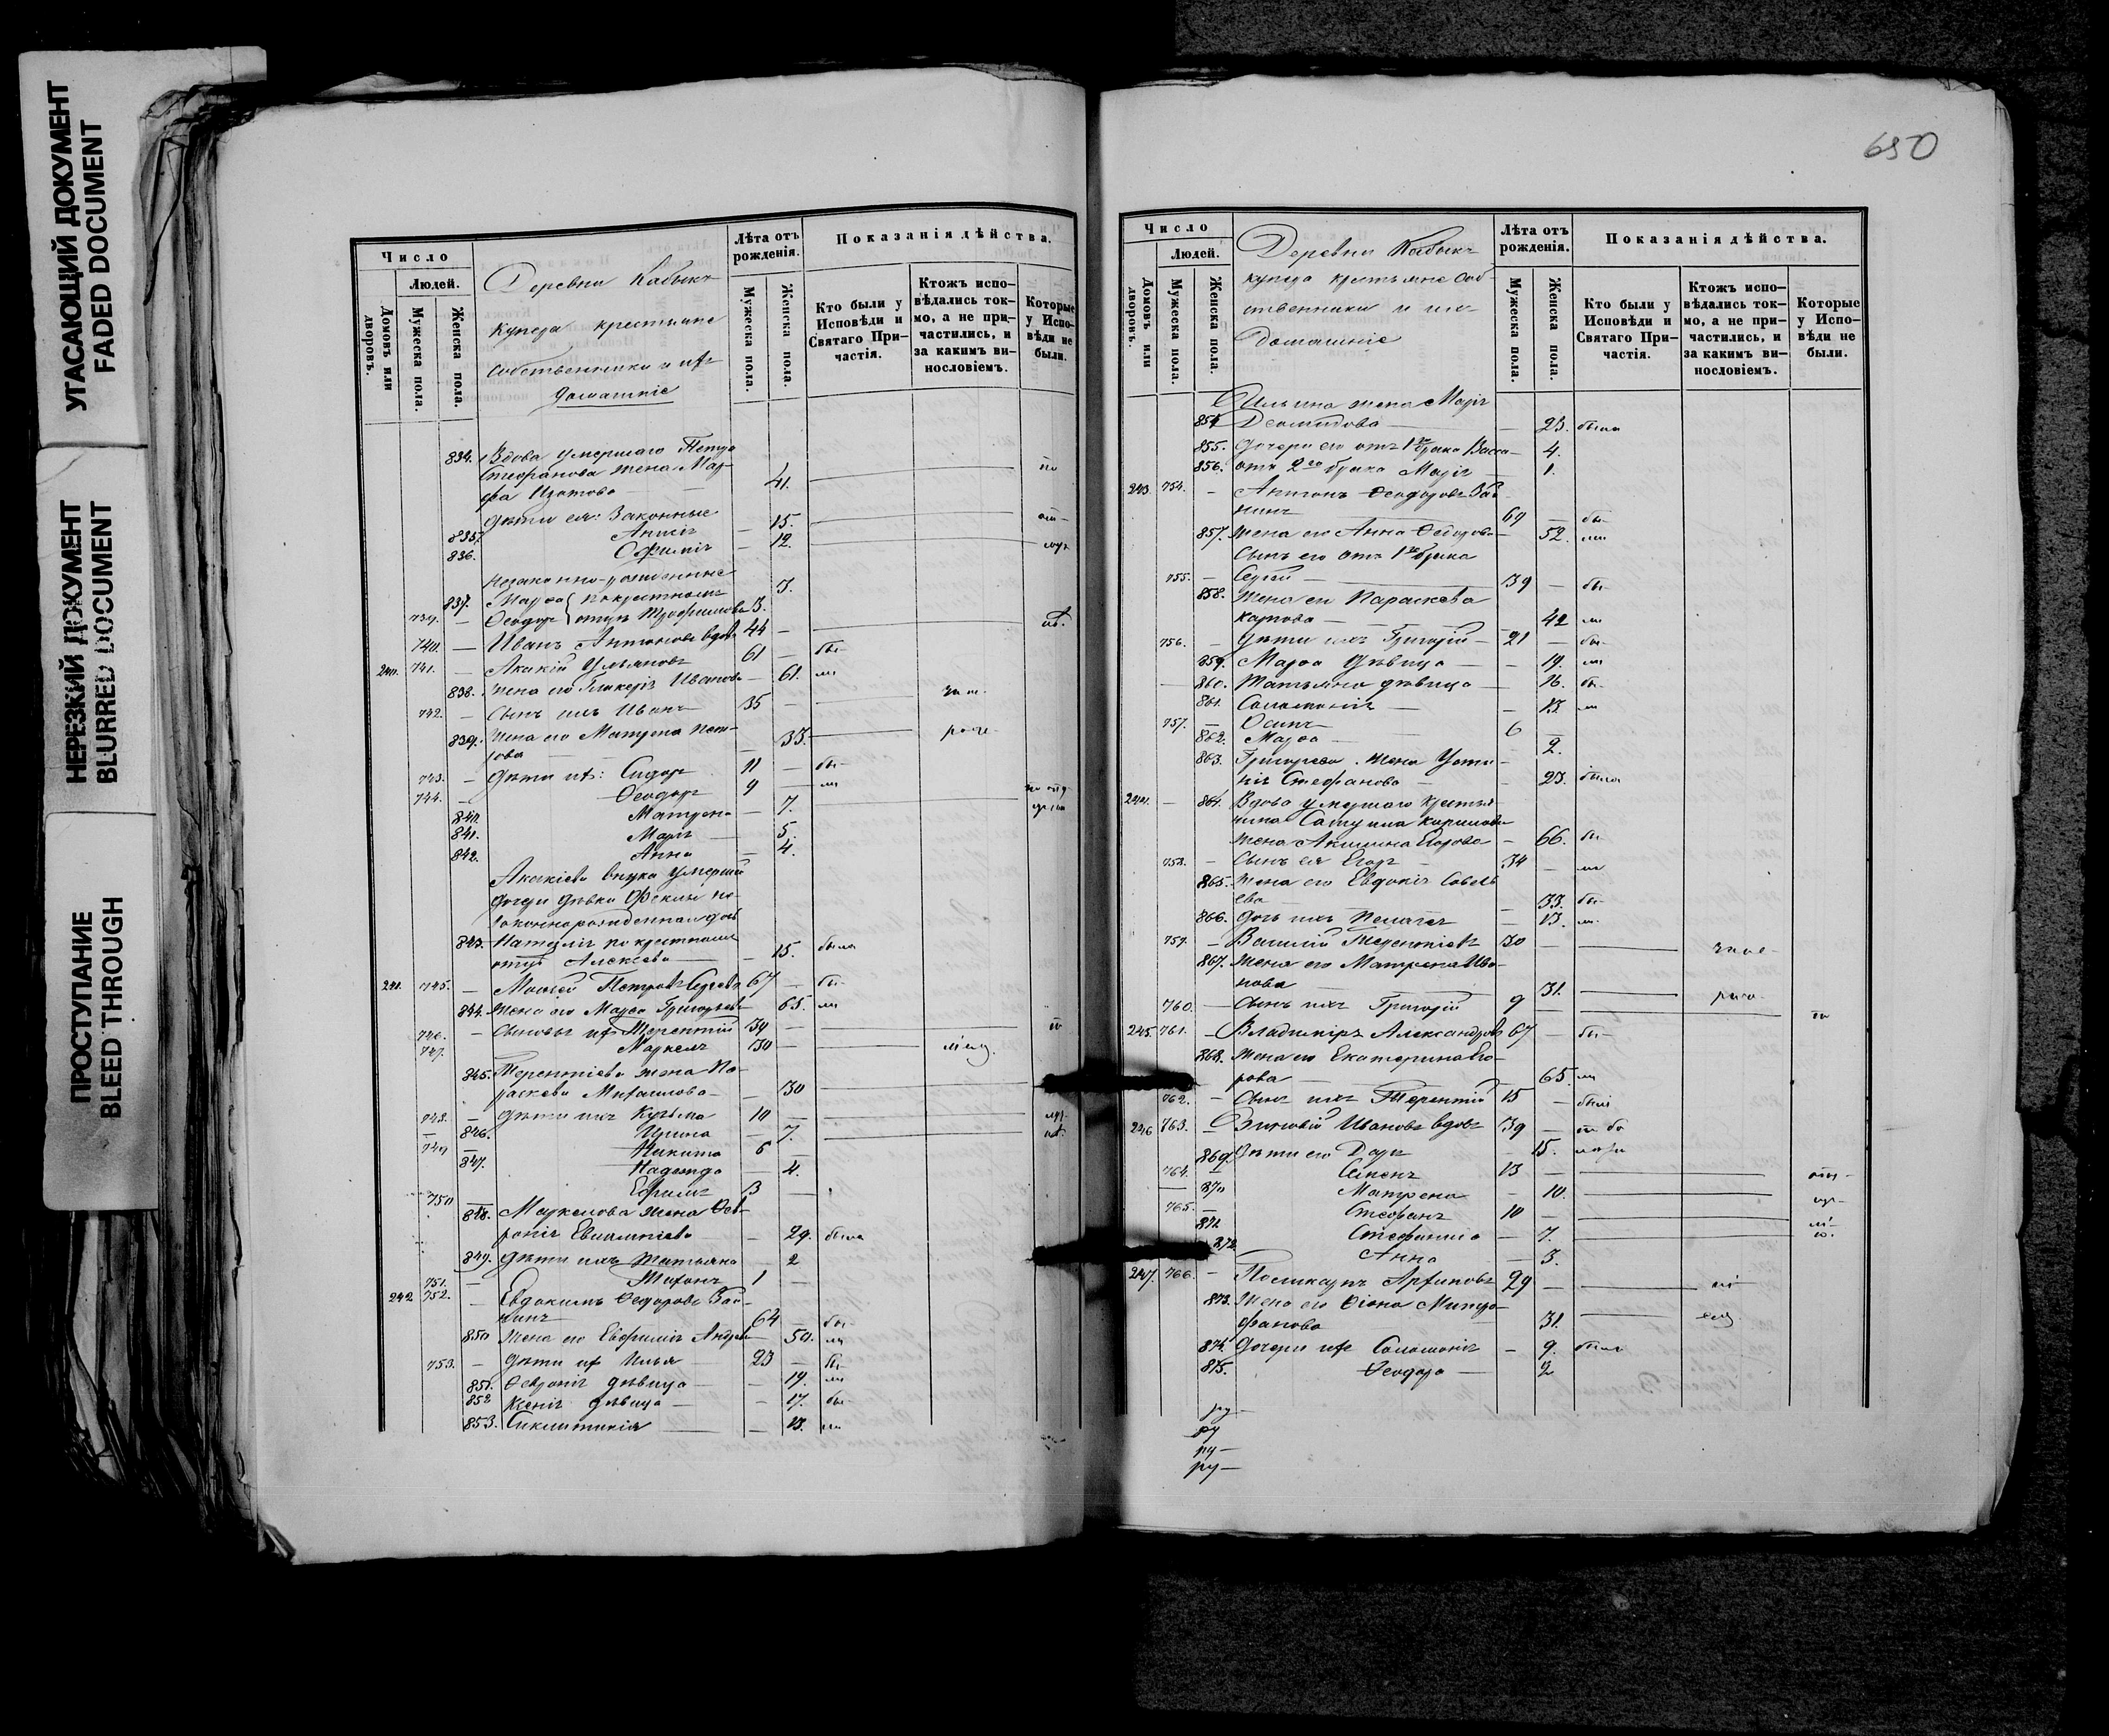 УГАСАЮЩИЙ ДОКУМЕНТ
FADED DOCUMENT
НЕРЕЗКИЙ ДОКУМЕНТ
BLURRED DOCUMENT
ПРОСТУПАНИЕ
BLEED THROUGH
Число
Людей.
Домовъ или дворовъ.
Мужеска пола.
Женска пола.
Деревни Кабыкъ
купеда крестьяне
собственники и ихъ
домашніе
Лѣта отъ рожденія.
Мужеска пола.
Женска пола.
Показанія дѣйства.
Кто были у Исповѣди и Святаго Причастія.
Ктожъ исповѣдались токмо, а не причастились, и за какимъ винословіемъ.
Которые у Исповѣди не были.
834. Вдова умершаго Петра
Стефанова жена Мар-
фа Изотова 41.
дѣти ея: Законные
835. Анисія 15.
836. Софрынія 12.
незаконно-рожденные
837. Марѳа по крестному 3.
739. — Ѳеодоръ отцу Трофимова 3.
740. — Иванъ Антоновъ вдовъ 44 —
240. 741. — Акакій Ульяновъ 61 — бы-
838. жена его Гликерія Иванова — 61. ли
742. — Сынъ ихъ Иванъ 35 —
839. жена его Матрена Пет-
рова 33.
743. — дѣти ихъ: Сидоръ 11 — бы-
744. — Ѳеодоръ 9 — ли
840. Матрена — 7.
841. Марія 5.
842. Анна — 4.
Акакіева внука умершей
дочери дѣвки Феклы не-
законнорожденная дочь
843. Наталія по крестному
отцу Алексѣева — 15. была
241. 745. — Моисей Петровъ Сергѣевъ 67 — бы-
844. жена его Марѳа Григорьева — 65. ли
746. — Сыновья ихъ Терентій 39 —
747. Маркелъ 30 —
845. Терентіева жена Па-
раскева Михаилова — 30
748. — дѣти ихъ Кузьма 10 —
846. Ирина — 7.
749 — Никита 6 —
847. Надежда — 4.
750 Ефимъ 3 —
848. Маркелова жена Ѳев-
ронія Евлампіева — 29. была
849. дѣти ихъ Татьяна — 2
751. — Тихонъ 1 —
242 752. — Евдокимъ Ѳедоровъ Зай-
кинъ 64 — бы-
850 жена его Евфимія Андрѣева — 50. ли
753. — дѣти ихъ Илья 23 — бы-
851. Ѳевронія дѣвица — 19. ли
852 Ксенія дѣвица — 17. бы-
853. Синклитикія — 13. ли
650
Число
Людей.
Домовъ или дворовъ.
Мужеска пола.
Женска пола.
Деревни Кабыкъ
купеда крестьяне соб-
ственники и их-
Домашніе
Лѣта отъ рожденія.
Мужеска пола.
Женска пола.
Показанія дѣйства.
Кто были у Исповѣди и Святаго Причастія.
Ктожъ исповѣдались токмо, а не причастились, и за какимъ винословіемъ.
Которые у Исповѣди не были.
Ильина жена Марія
854 Деомидова — 23. была
855. дочери его отъ 1го брака Васса — 4.
856. отъ 2го брака Марія — 1.
243. 754. — Антонъ Ѳеодоровъ Зай-
кинъ 69 — бы-
857. жена его Анна Ѳедорова — 52. ли
Сынъ его отъ 1го брака
755. — Сергей 39 — бы-
858. жена его Параскева
Карпова — 42 ли
756. — Дѣти ихъ Григорій — 21 — бы-
859. Марѳа дѣвица — 19. ли
860. Татьяна дѣвица — 16. бы-
861. Саломонія — 13 ли
757. — Осипъ 6 —
862. Марѳа — 2.
863. Григорьева жена Усти-
нія Стефанова — 23. была
244. — 864. Вдова умершаго крестья-
нина Сатурина Кириллова
жена Акилина Егорова — 66. бы-
758. — Сынъ ея Егоръ 34 — ли
865. жена его Евдокія Савель-
ева — 33. бы-
866. дочь ихъ Пелагея — 13. ли
759. — Василій Терентіевъ 30 —
867. жена его Матрена Ива-
нова 31.
760. — Сынъ ихъ Григорій 9 —
245. 761. — Владиміръ Александровъ 67 — бы-
868. жена его Екатерина Его-
рова — 65. ли
762. — Сынъ ихъ Терентій 15 — былі
246 763. — Зиновій Ивановъ вдовъ 39 —
869. Дѣти его Дарія — 15.
764. — Семенъ 13 —
870 Матрена — 10.
765. — Стефанъ 10 —
871 Стефанида — 7.
872 Анна — 3.
247. 766. — Поликарпъ Архиповъ 29 —
873. жена его Ѳіона Митро-
фанова — 31.
874. Дочери ихъ Саломонія — 9. была
875. Ѳеодора — 2
ру-
ру
ру-
ру-